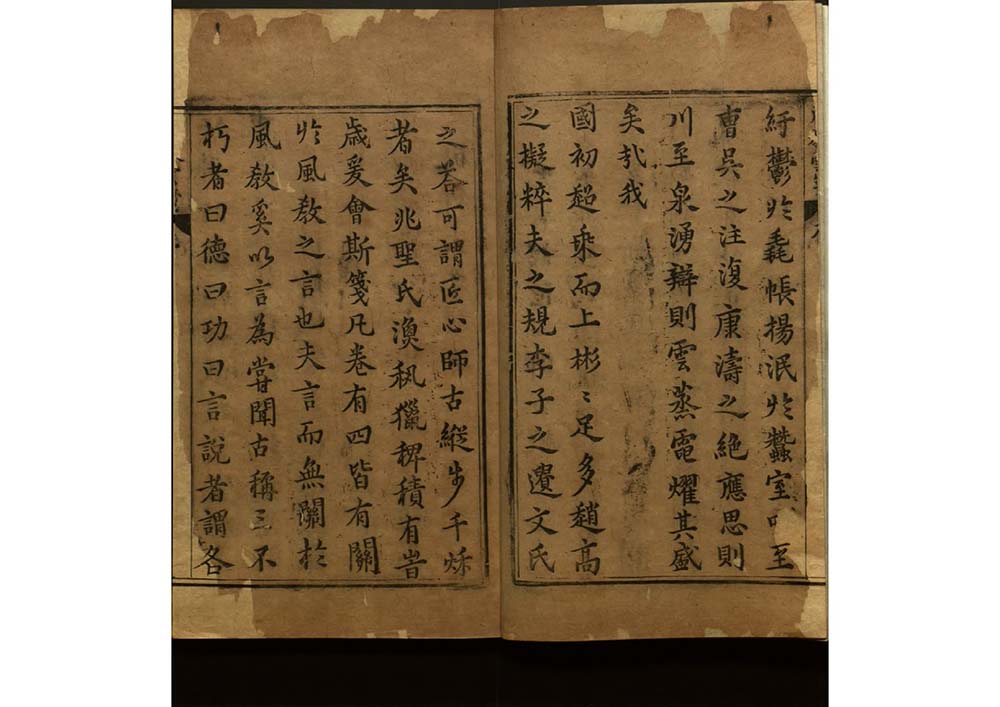 紆鬱於毳帳揚泯於蠶室
至
曹吳之注復康濤之絶應思則
川至泉湧辯則雲蒸電燿其盛
矣㢤我
國初超乘而上彬〻足多趙高
之擬粹夫之規李子之遺文氏
之荅可謂匠心師古縱步千秌
者矣兆聖氏漁秇獵稗積有峕
歳爰會斯箋凡卷有四皆有關
於風敎之言也夫言而無關於
風敎奚以言為甞聞古稱三不
朽者曰德曰功曰言說者謂各